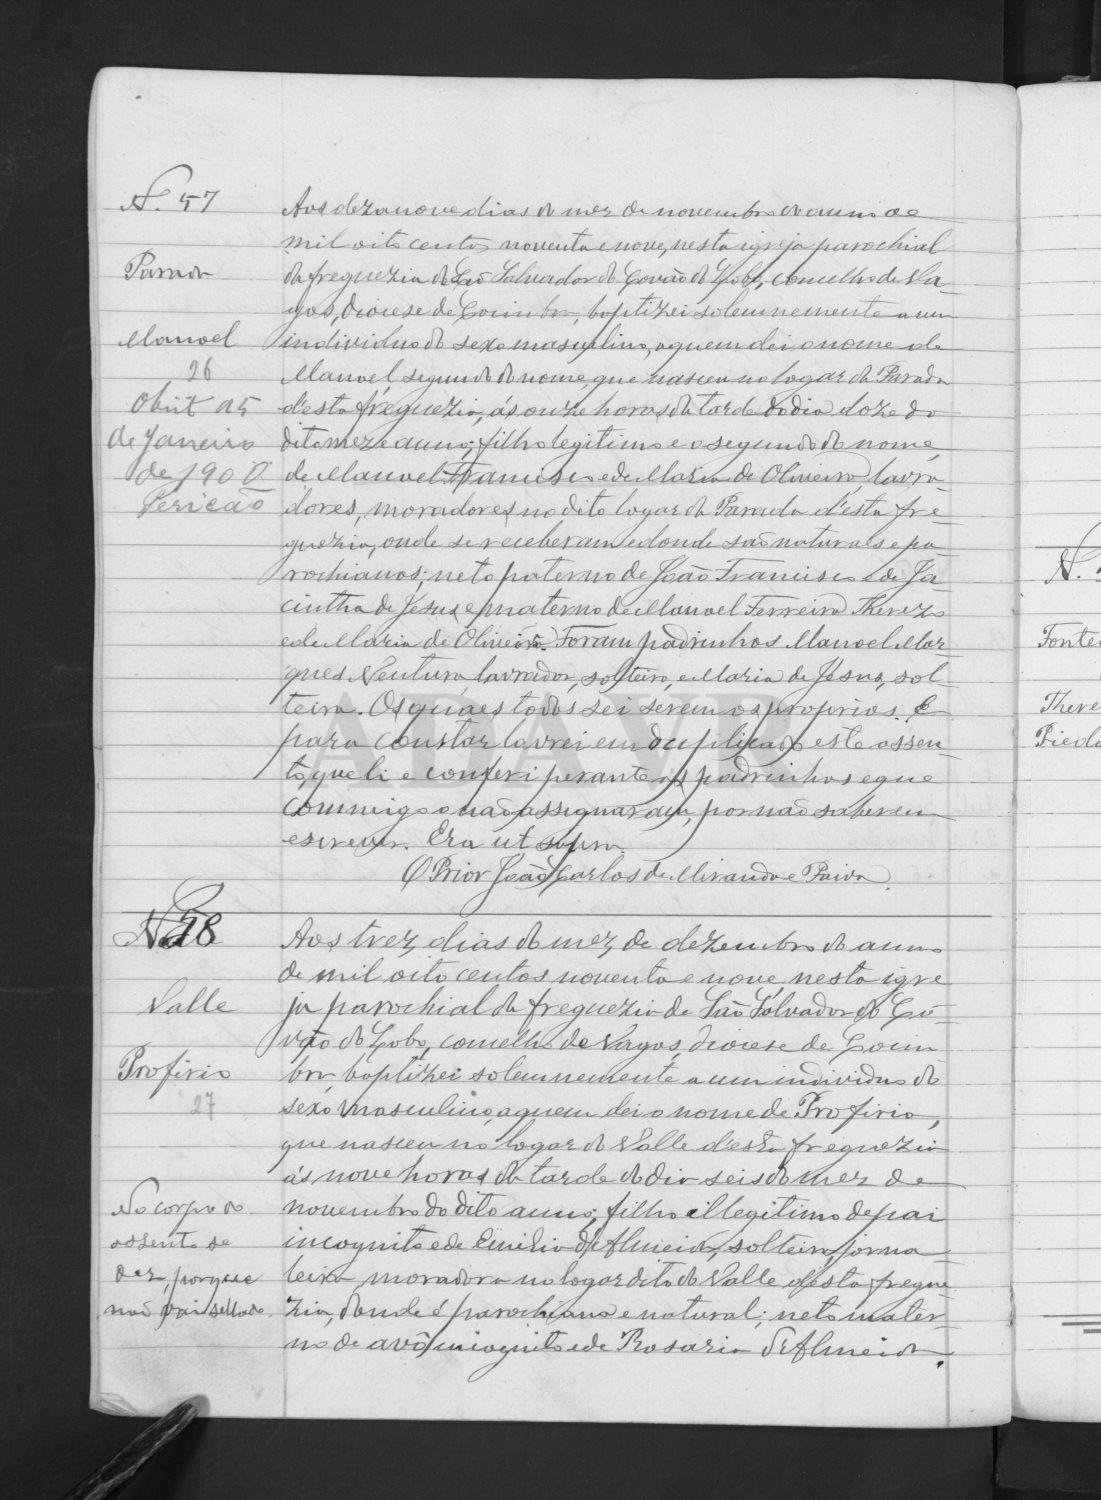 N. 57
Parada
Manoel
26
Obiit a 5
de Janeiro
de 1900
Aos dezanove dias do mez de novembro do anno de
mil oito centos noventa e nove, nesta igreja parochial
da freguezia de São Salvador do Covão do Lobo, concelho de Va-
gos, diocese de Coimbra, baptizei solemnemente a um
individuo do sexo masculino, a quem dei o nome de
Manoel, segundo do nome, que nasceu no logar da Parada
d'esta freguezia, ás onze horas da tarde do dia doze do
dito mez e anno; filho legitimo e o segundo do nome,
de Manoel Francisco e de Maria de Oliveira, lavra-
dores, moradores no dito logar da Parada d'esta fre-
guezia, onde se receberam e donde são naturaes e pa-
rochianos; neto paterno de João Francisco e de Ja-
cintha de Jesus, e materno de Manoel Ferreira Thereso
e de Maria de Oliveira. Foram padrinhos Manoel Mar-
ques Ventura, lavrador, solteiro, e Maria de Jesus, sol-
teira. Os quaes todos sei serem os proprios. E
para constar lavrei em duplicado este assen-
to, que li e conferi perante os padrinhos e que
commigo o não assignaram, por não saberem
escrever. Era ut supra.
O Prior João Carlos de Miranda e Paiva.
N 58
Valle
Profirio
27
No corpo do
assento se
diz, porque
não vai sellado
Aos trez dias do mez de dezembro do anno
de mil oito centos noventa e nove, nesta igre
ja parochial da freguezia de São Salvador do Co-
vão do Lobo, concelho de Vagos, diocese de Coim
bra, baptizei solemnemente a um individuo do
sexo masculino, a quem dei o nome de Profirio,
que nasceu no logar do Valle d'esta freguezia
ás nove horas da tarde do dia seis do mez de
novembro do dito anno; filho illegitimo de pai
incognito e de Emilia d'Almeida, solteira, jorna
leira, moradora no logar dito do Valle d'esta fregue
zia, donde é parochiana e natural; neto mater-
no de avô incognito e de Rosaria d'Almeida.
N.
Fonte
There
Pieda
ADAVR